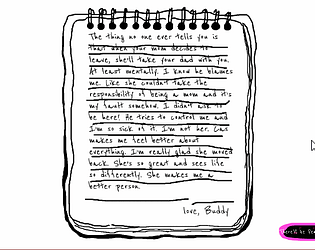 The thing no one ever tells you is
that when your mom decides to
leave, she'll take your dad with you.
At least mentally. I know he blames
me. Like she couldn't take the
responsibility of being a mom and it's
my fault somehow. I didn't ask to
be here! He tries to control me and
I'm so sick of it. I'm not her. Cas
makes me feel better about
everything. I'm really glad she moved
back. She's so great and sees life
so differently. She makes me a
better person.
love, Buddy